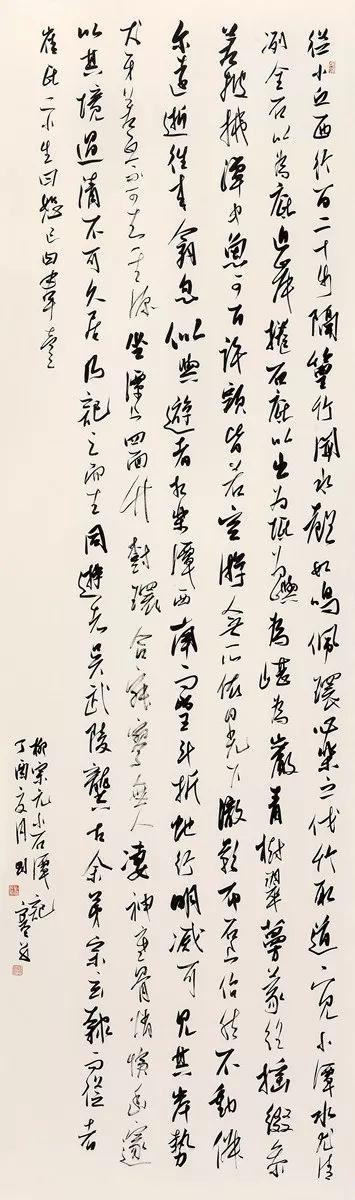 從小丘西行百二十步隔篁竹聞水聲如鳴佩環心樂之伐竹取道下見小潭水尤清
冽全石以為底近岸捲石底以出為坻為嶼為嵁為巖青樹翠蔓蒙絡搖綴參
差披拂潭中魚可百許頭皆若空游人無所依日光下澈影布石上佁然不動俶
尔遠逝往來翕忽似與遊者相樂潭西南而望斗折蛇行明滅可見其岸勢
犬牙差互不可知其源坐潭上四面竹樹環合寂寥無人凄神寒骨悄愴幽邃
以其境過清不可久居乃記之而去同遊者吳武陵龔古余弟宗玄隸而從者
崔氏二小生曰恕己曰奉壹
柳宗元小石潭記
丁酉夏月